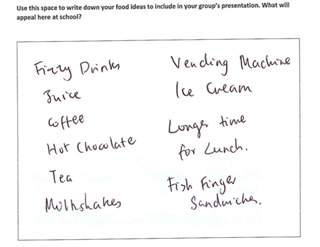 Use this space to write down your food ideas to include in your group's presentation. What will
appeal here at school?
Fizzy Drinks
Juice
Coffee
Hot Chocolate
Tea
Milkshakes
Vending Machine
Ice Cream
Longer time
for Lunch.
Fish Finger
Sandwiches.